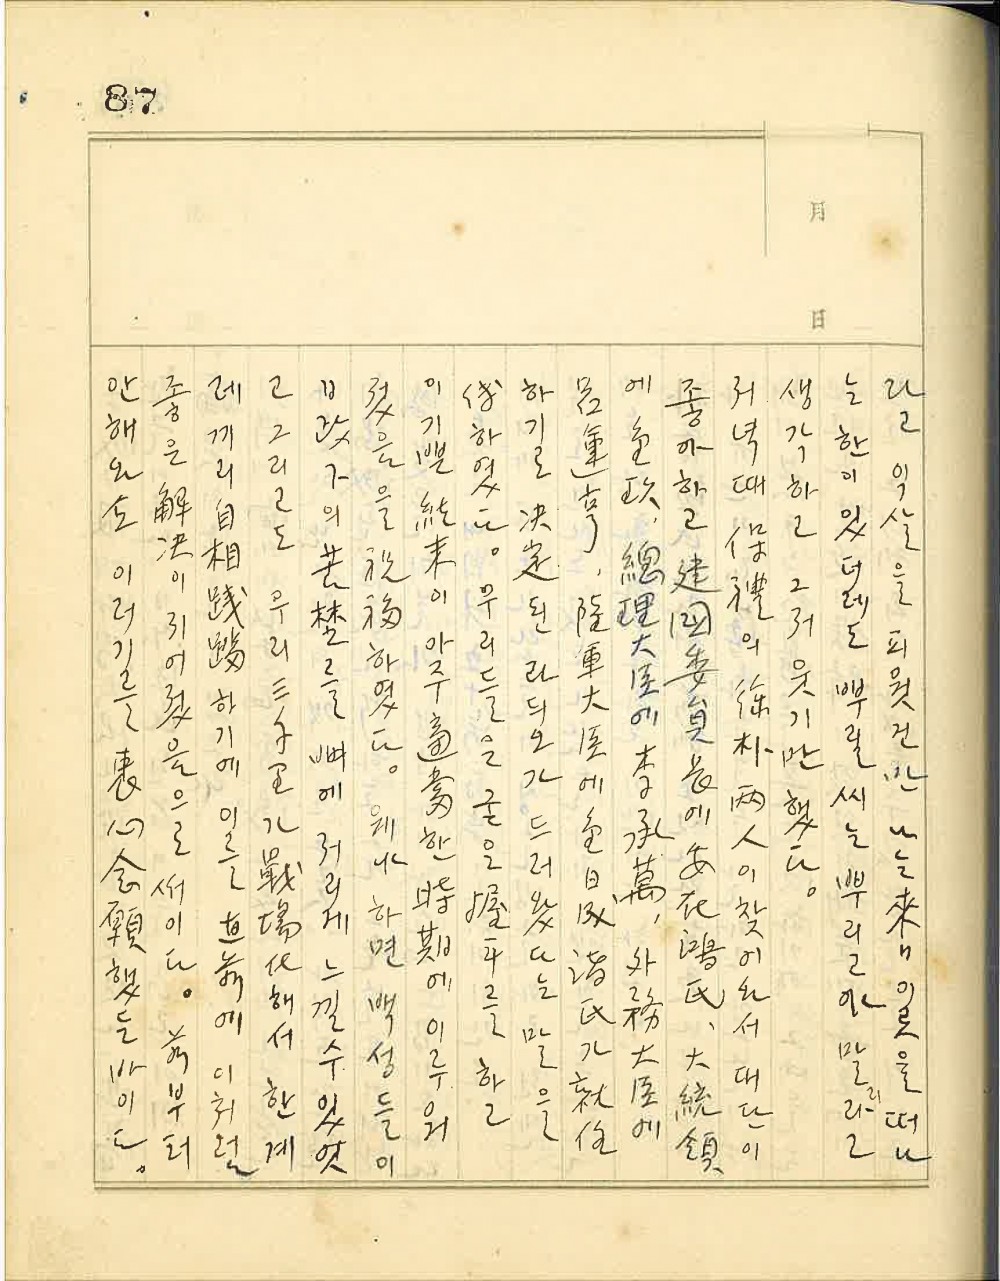 87
月
日
라고 익살을 피웟건만 나는 來日 이곳을 떠나
는 한이 있더래도 뿌릴 씨는 뿌리고야 말리라고
생각하고 그저 웃기만 했다。
저녁때 保禮의 徐朴 兩人이 찾어와서 대단이
좋아하고 建國委員長에 安在鴻氏、大統領
에 金玖、總理大臣에 李承萬、外務大臣에
呂運亨、陸軍大臣에 金日成 諸氏가 就任
하기로 決定된 라듸오가 드러왔다는 말을
傳하였다。우리들은 굳은 握手를 하고
이 기쁜 結末이 아주 適當한 時期에 이루워
젔음을 祝福하였다。웨냐 하면 백성들이
日政下의 苦楚를 뼈에 저리게 느낄수있엇
고 그리고도 우리 三千里가 戰場化해서 한 계
레끼리 自相踐踏하기에 이를 直前에 이처럼
좋은 解決이 지어젔음으로 써이다。前부터
안해와도 이러기를 衷心念願했든 바이다。